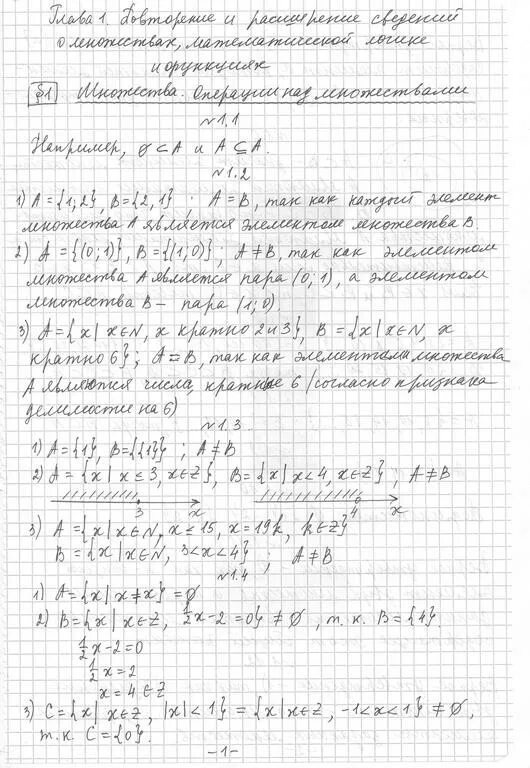 Глава 1. Повторение и расширение сведений
о множествах, математической логике
и функциях
§1 Множества. Операции над множествами
№1.1
Например, ∅ ⊂ A и A ⊆ A.
№1.2
1) A = {1; 2}, B = {2, 1} ; A = B, так как каждый элемент
множества A является элементом множества B.
2) A = {(0; 1)}, B = {(1; 0)}; A ≠ B, так как элементом
множества A является пара (0; 1), а элементом
множества B – пара (1; 0).
3) A = {x | x ∈ N, x кратно 2 и 3}, B = {x | x ∈ N, x
кратно 6}; A = B, так как элементами множества
A являются числа, кратные 6 (согласно признака
делимости на 6)
№1.3.
1) A = {1}, B = {{1}} ; A ≠ B
2) A = {x | x ≤ 3, x ∈ Z}, B = {x | x < 4, x ∈ Z} ; A ≠ B
3 x 4 x
3) A = {x | x ∈ N, x ≤ 15, x = 19k, k ∈ Z}
B = {x | x ∈ N, 3 < x < 4} ; A ≠ B
№1.4
1) A = {x | x ≠ x} = ∅
2) B = {x | x ∈ Z, 1/2 x - 2 = 0} ≠ ∅, т. к. B = {4}.
1/2 x - 2 = 0
1/2 x = 2
x = 4 ∈ Z
3) C = {x | x ∈ Z, |x| < 1} = {x | x ∈ Z, -1 < x < 1} ≠ ∅,
т. к. C = {0}.
-1-